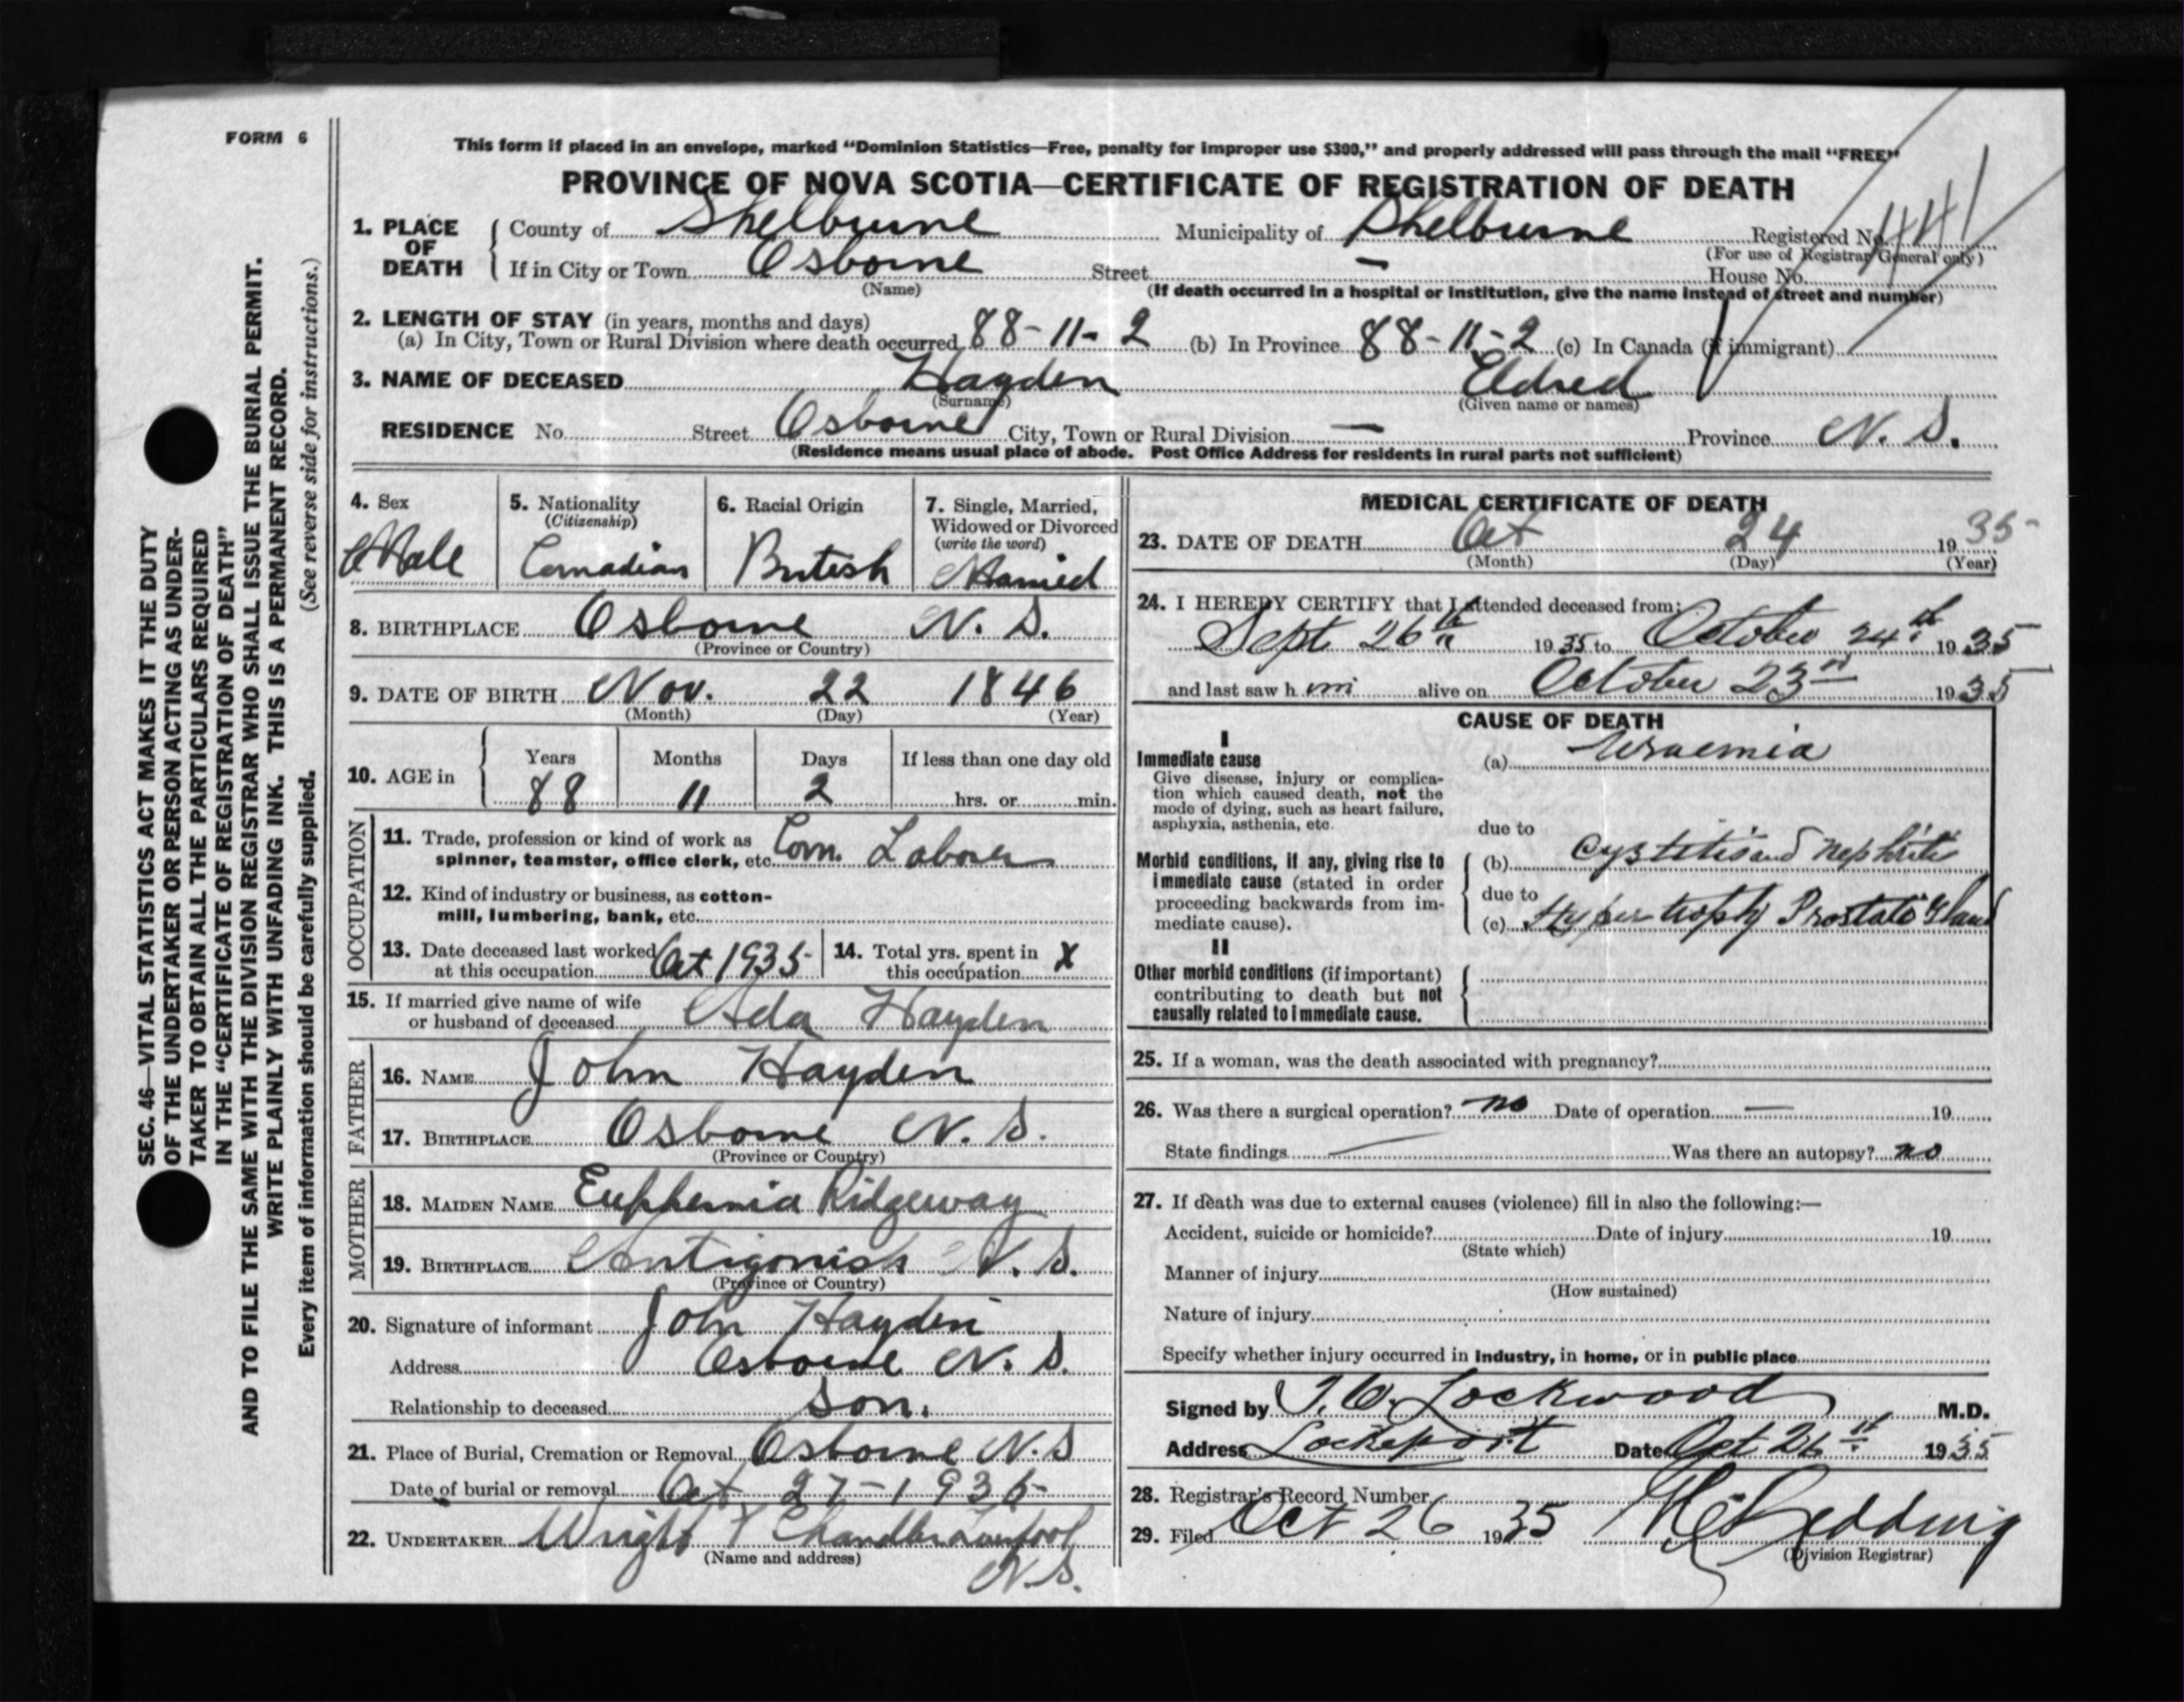 FORM 6
SEC. 46—VITAL STATISTICS ACT MAKES IT THE DUTY
OF THE UNDERTAKER OR PERSON ACTING AS UNDER-
TAKER TO OBTAIN ALL THE PARTICULARS REQUIRED
IN THE "CERTIFICATE OF REGISTRATION OF DEATH"
AND TO FILE THE SAME WITH THE DIVISION REGISTRAR WHO SHALL ISSUE THE BURIAL PERMIT.
WRITE PLAINLY WITH UNFADING INK. THIS IS A PERMANENT RECORD.
Every item of information should be carefully supplied. (See reverse side for instructions.)
This form if placed in an envelope, marked "Dominion Statistics—Free, penalty for improper use $300," and properly addressed will pass through the mail "FREE"
PROVINCE OF NOVA SCOTIA—CERTIFICATE OF REGISTRATION OF DEATH
1. PLACE OF DEATH
County of Shelburne Municipality of Shelburne Registered No. 441
(For use of Registrar General only)
If in City or Town Osborne Street — House No.
(Name) (If death occurred in a hospital or institution, give the name instead of street and number)
2. LENGTH OF STAY (in years, months and days)
(a) In City, Town or Rural Division where death occurred 88-11-2 (b) In Province 88-11-2 (c) In Canada (if immigrant)
3. NAME OF DECEASED Hayden Eldred
(Surname) (Given name or names)
RESIDENCE No. Street Osborne City, Town or Rural Division — Province N. S.
(Residence means usual place of abode. Post Office Address for residents in rural parts not sufficient)
4. Sex
Male
5. Nationality
(Citizenship)
Canadian
6. Racial Origin
British
7. Single, Married,
Widowed or Divorced
(write the word)
Married
8. BIRTHPLACE Osborne N. S.
(Province or Country)
9. DATE OF BIRTH Nov. 22 1846
(Month) (Day) (Year)
10. AGE in
Years Months Days If less than one day old
88 11 2 hrs. or min.
OCCUPATION
11. Trade, profession or kind of work as
spinner, teamster, office clerk, etc. Com. Laborer
12. Kind of industry or business, as cotton-
mill, lumbering, bank, etc.
13. Date deceased last worked
at this occupation Oct 1935
14. Total yrs. spent in
this occupation X
15. If married give name of wife
or husband of deceased Ada Hayden
FATHER
16. NAME John Hayden
17. BIRTHPLACE Osborne N. S.
(Province or Country)
MOTHER
18. MAIDEN NAME Euphemia Ridgeway
19. BIRTHPLACE Antigonish N. S.
(Province or Country)
20. Signature of informant John Hayden
Address Osborne N. S.
Relationship to deceased Son.
21. Place of Burial, Cremation or Removal Osborne N.S
Date of burial or removal Oct 27-1935
22. UNDERTAKER Wright & Chandler Liverpool
(Name and address)
N.S.
MEDICAL CERTIFICATE OF DEATH
23. DATE OF DEATH Oct 24 1935
(Month) (Day) (Year)
24. I HEREBY CERTIFY that I attended deceased from:
Sept 26th 1935 to October 24th 1935
and last saw him alive on October 23rd 1935
CAUSE OF DEATH
I
Immediate cause
Give disease, injury or complica-
tion which caused death, not the
mode of dying, such as heart failure,
asphyxia, asthenia, etc.
(a) Uraemia
due to
Morbid conditions, if any, giving rise to
immediate cause (stated in order
proceeding backwards from im-
mediate cause).
(b) Cystitis and Nephritis
due to
(c) Hypertrophy Prostate Gland
II
Other morbid conditions (if important)
contributing to death but not
causally related to immediate cause.
25. If a woman, was the death associated with pregnancy?
26. Was there a surgical operation? no Date of operation — 19
State findings — Was there an autopsy? no
27. If death was due to external causes (violence) fill in also the following:—
Accident, suicide or homicide? Date of injury 19
(State which)
Manner of injury
(How sustained)
Nature of injury
Specify whether injury occurred in industry, in home, or in public place
Signed by Lockwood M.D.
Address Lockeport Date Oct 26th 1935
28. Registrar's Record Number
29. Filed Oct 26 1935
(Division Registrar)